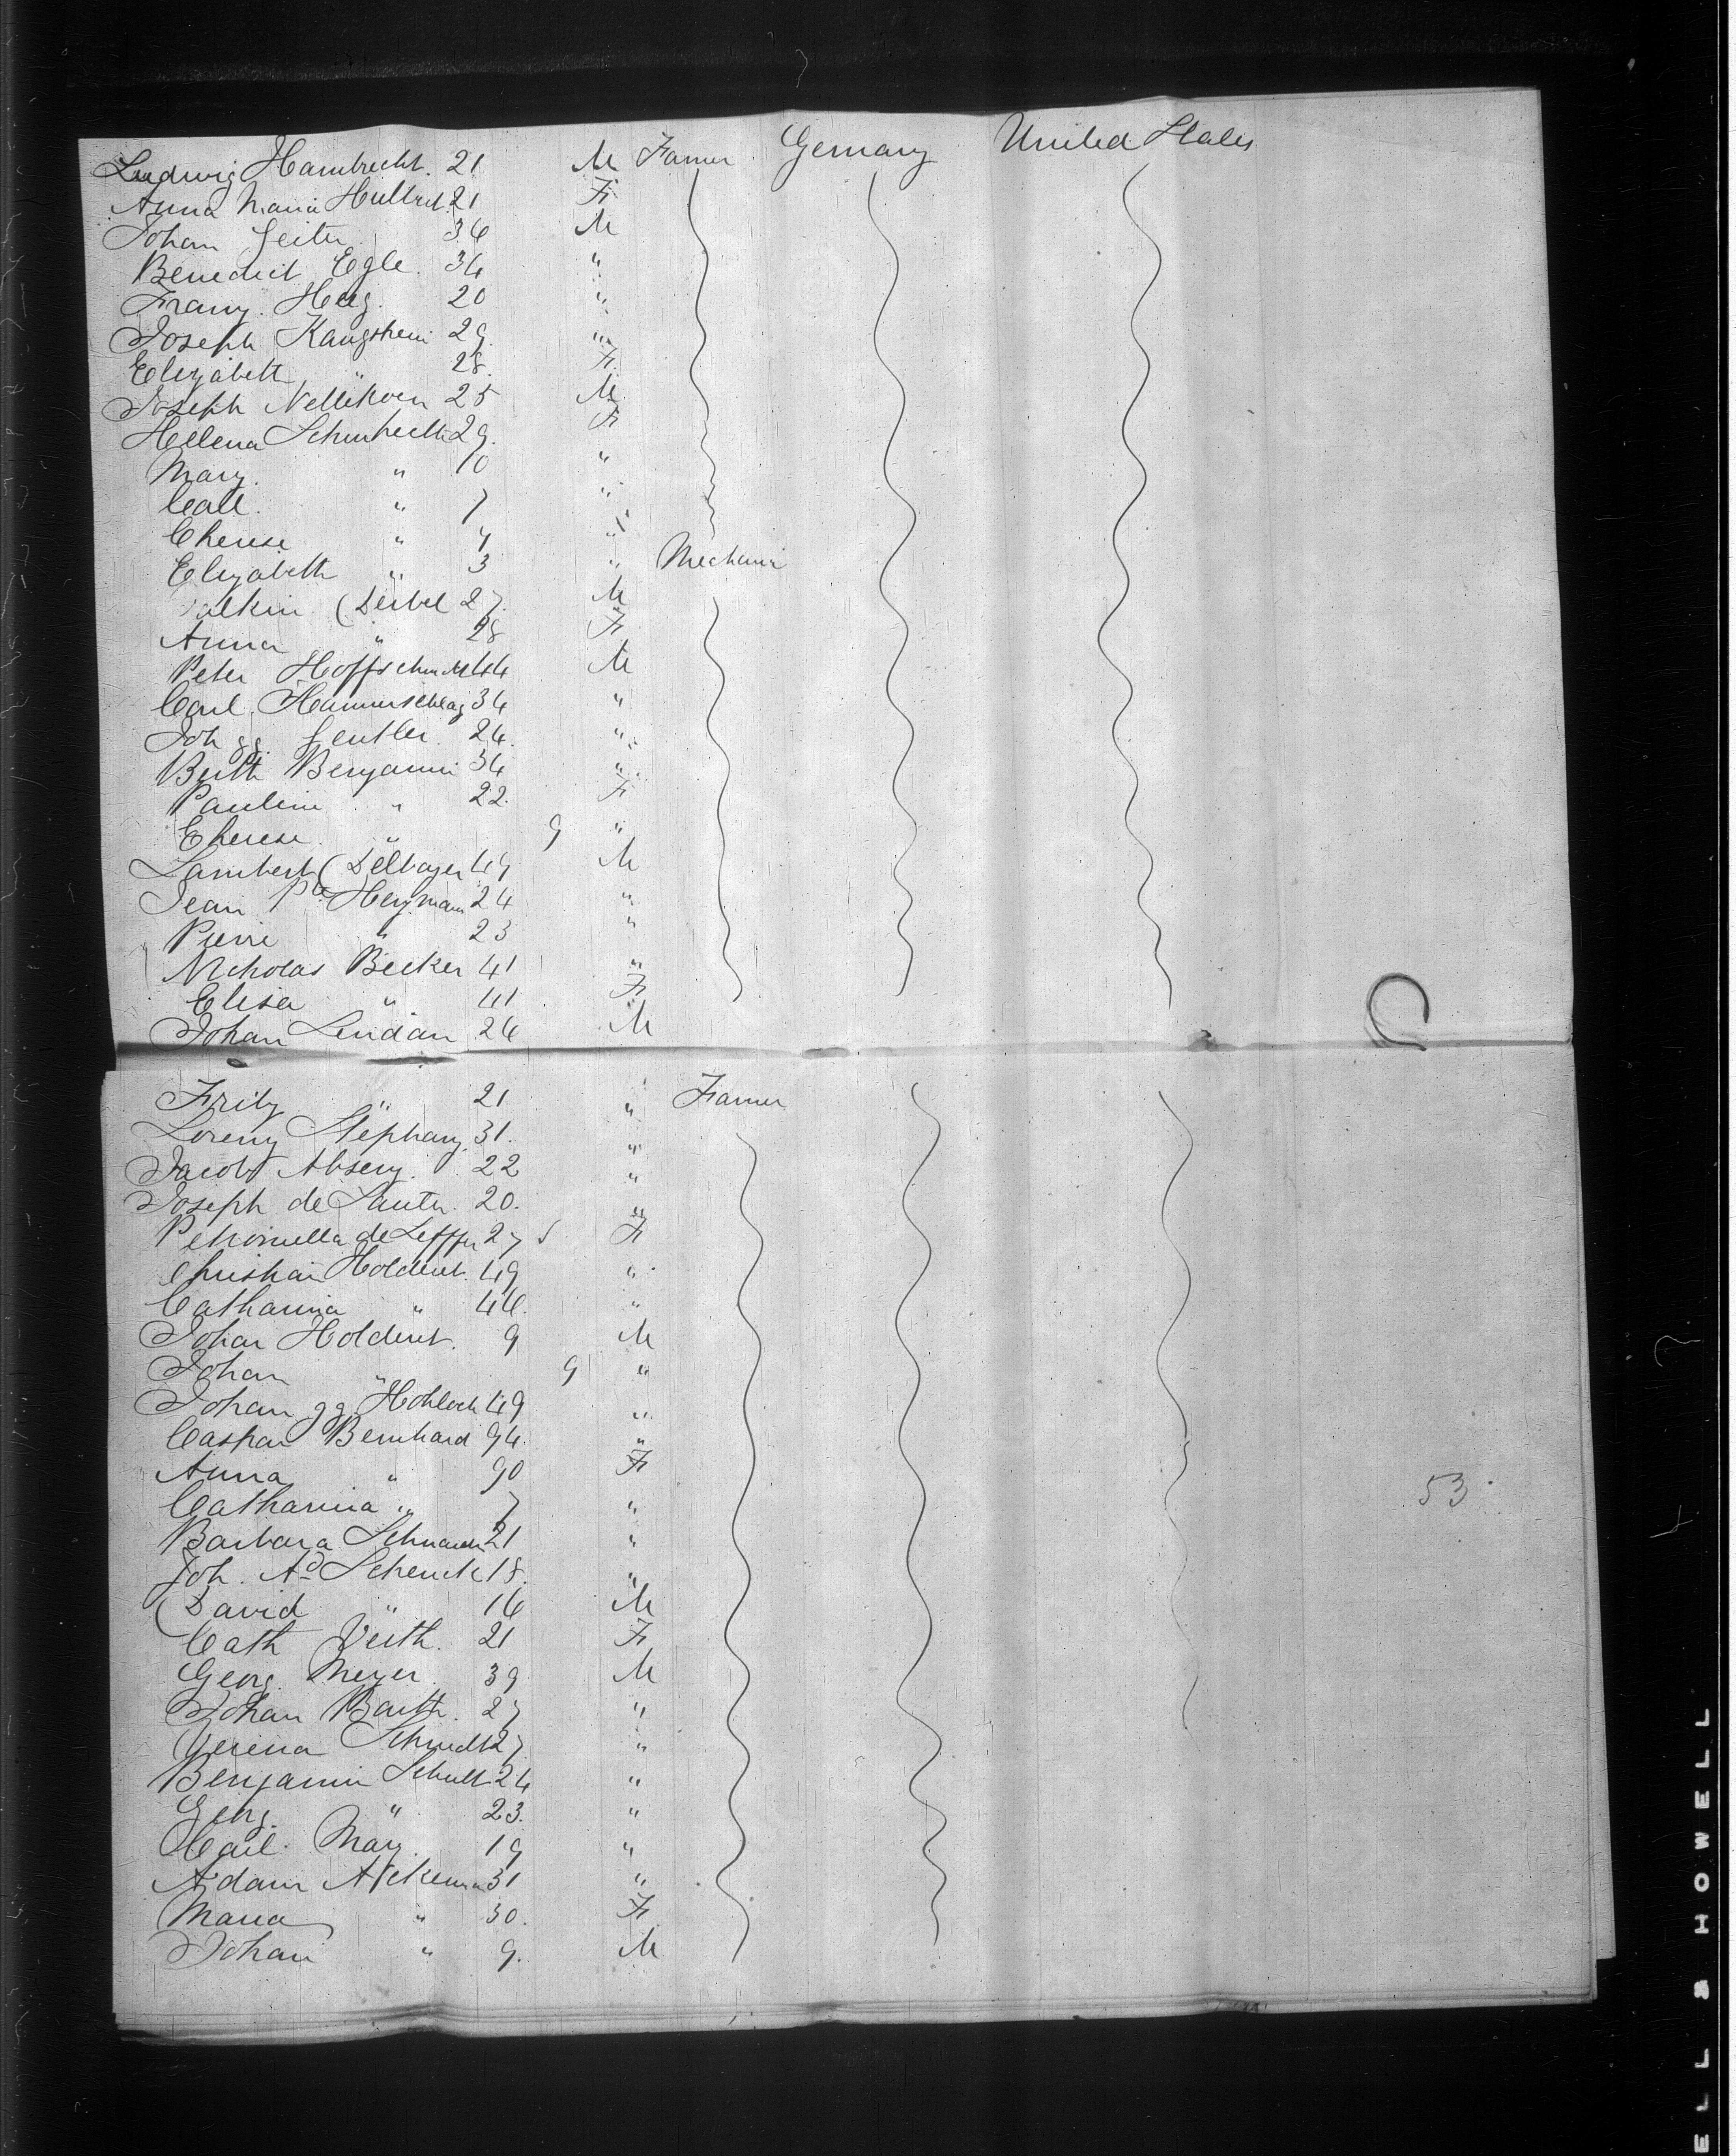 Ludwig Hambrecht. 21 M Farmer Germany United States
Anna Maria 21 F
Johan 34 M
Benedict Egle. 34 "
Franz. Herz. 20 "
Joseph 29. "
Elizabeth " 28. F.
Joseph Nellikoen 25 M
Hellena 29. F
Mary. " 10 "
Call. " 7 "
Therese " 4 "
Elizabeth " 3 " Mechanic
(Deibel 27. M
Anna " 28 F
Peter Hoffschmidt 44 M
Carl. Hammerschlag 34 "
Joh gg. 24. "
Berth Benjamin 34 "
Pauline " 22. F
Therese " 9 "
Lambert Delbayer 49 M
Jean Pte. Heyman 24 "
Pierre " 23 "
Nicholas Becker 41 "
Elisa " 41 F
Johan Lindan 24 M
Fritz " 21 " Farmer
Lorenz Stephany 31. "
Jacob 22 "
Joseph de Sauter. 20. "
Petronella de Leffer 27 F
Christian Holderet. 49 "
Catharina " 44. "
Johan Holderet. 9 M
Johan " 9 "
Johan gg. Hohloch 49 "
Caspar Bernhard 94. "
Anna " 90 F
Catharina " 7 "
Barbara 21 "
Joh. Ad Schenck 18. "
David " 16 M
Cath Veith. 21 F
Georg Meyer 39 M
Johan Barth. 27 "
Verena Schmidt 27. "
Benjamin Schult 24 "
Georg. " 23. "
Carl. May. 19 "
Adam Ackerman 31 "
Maria " 30. F
Johan " 9. M
53
ELL & HOWELL